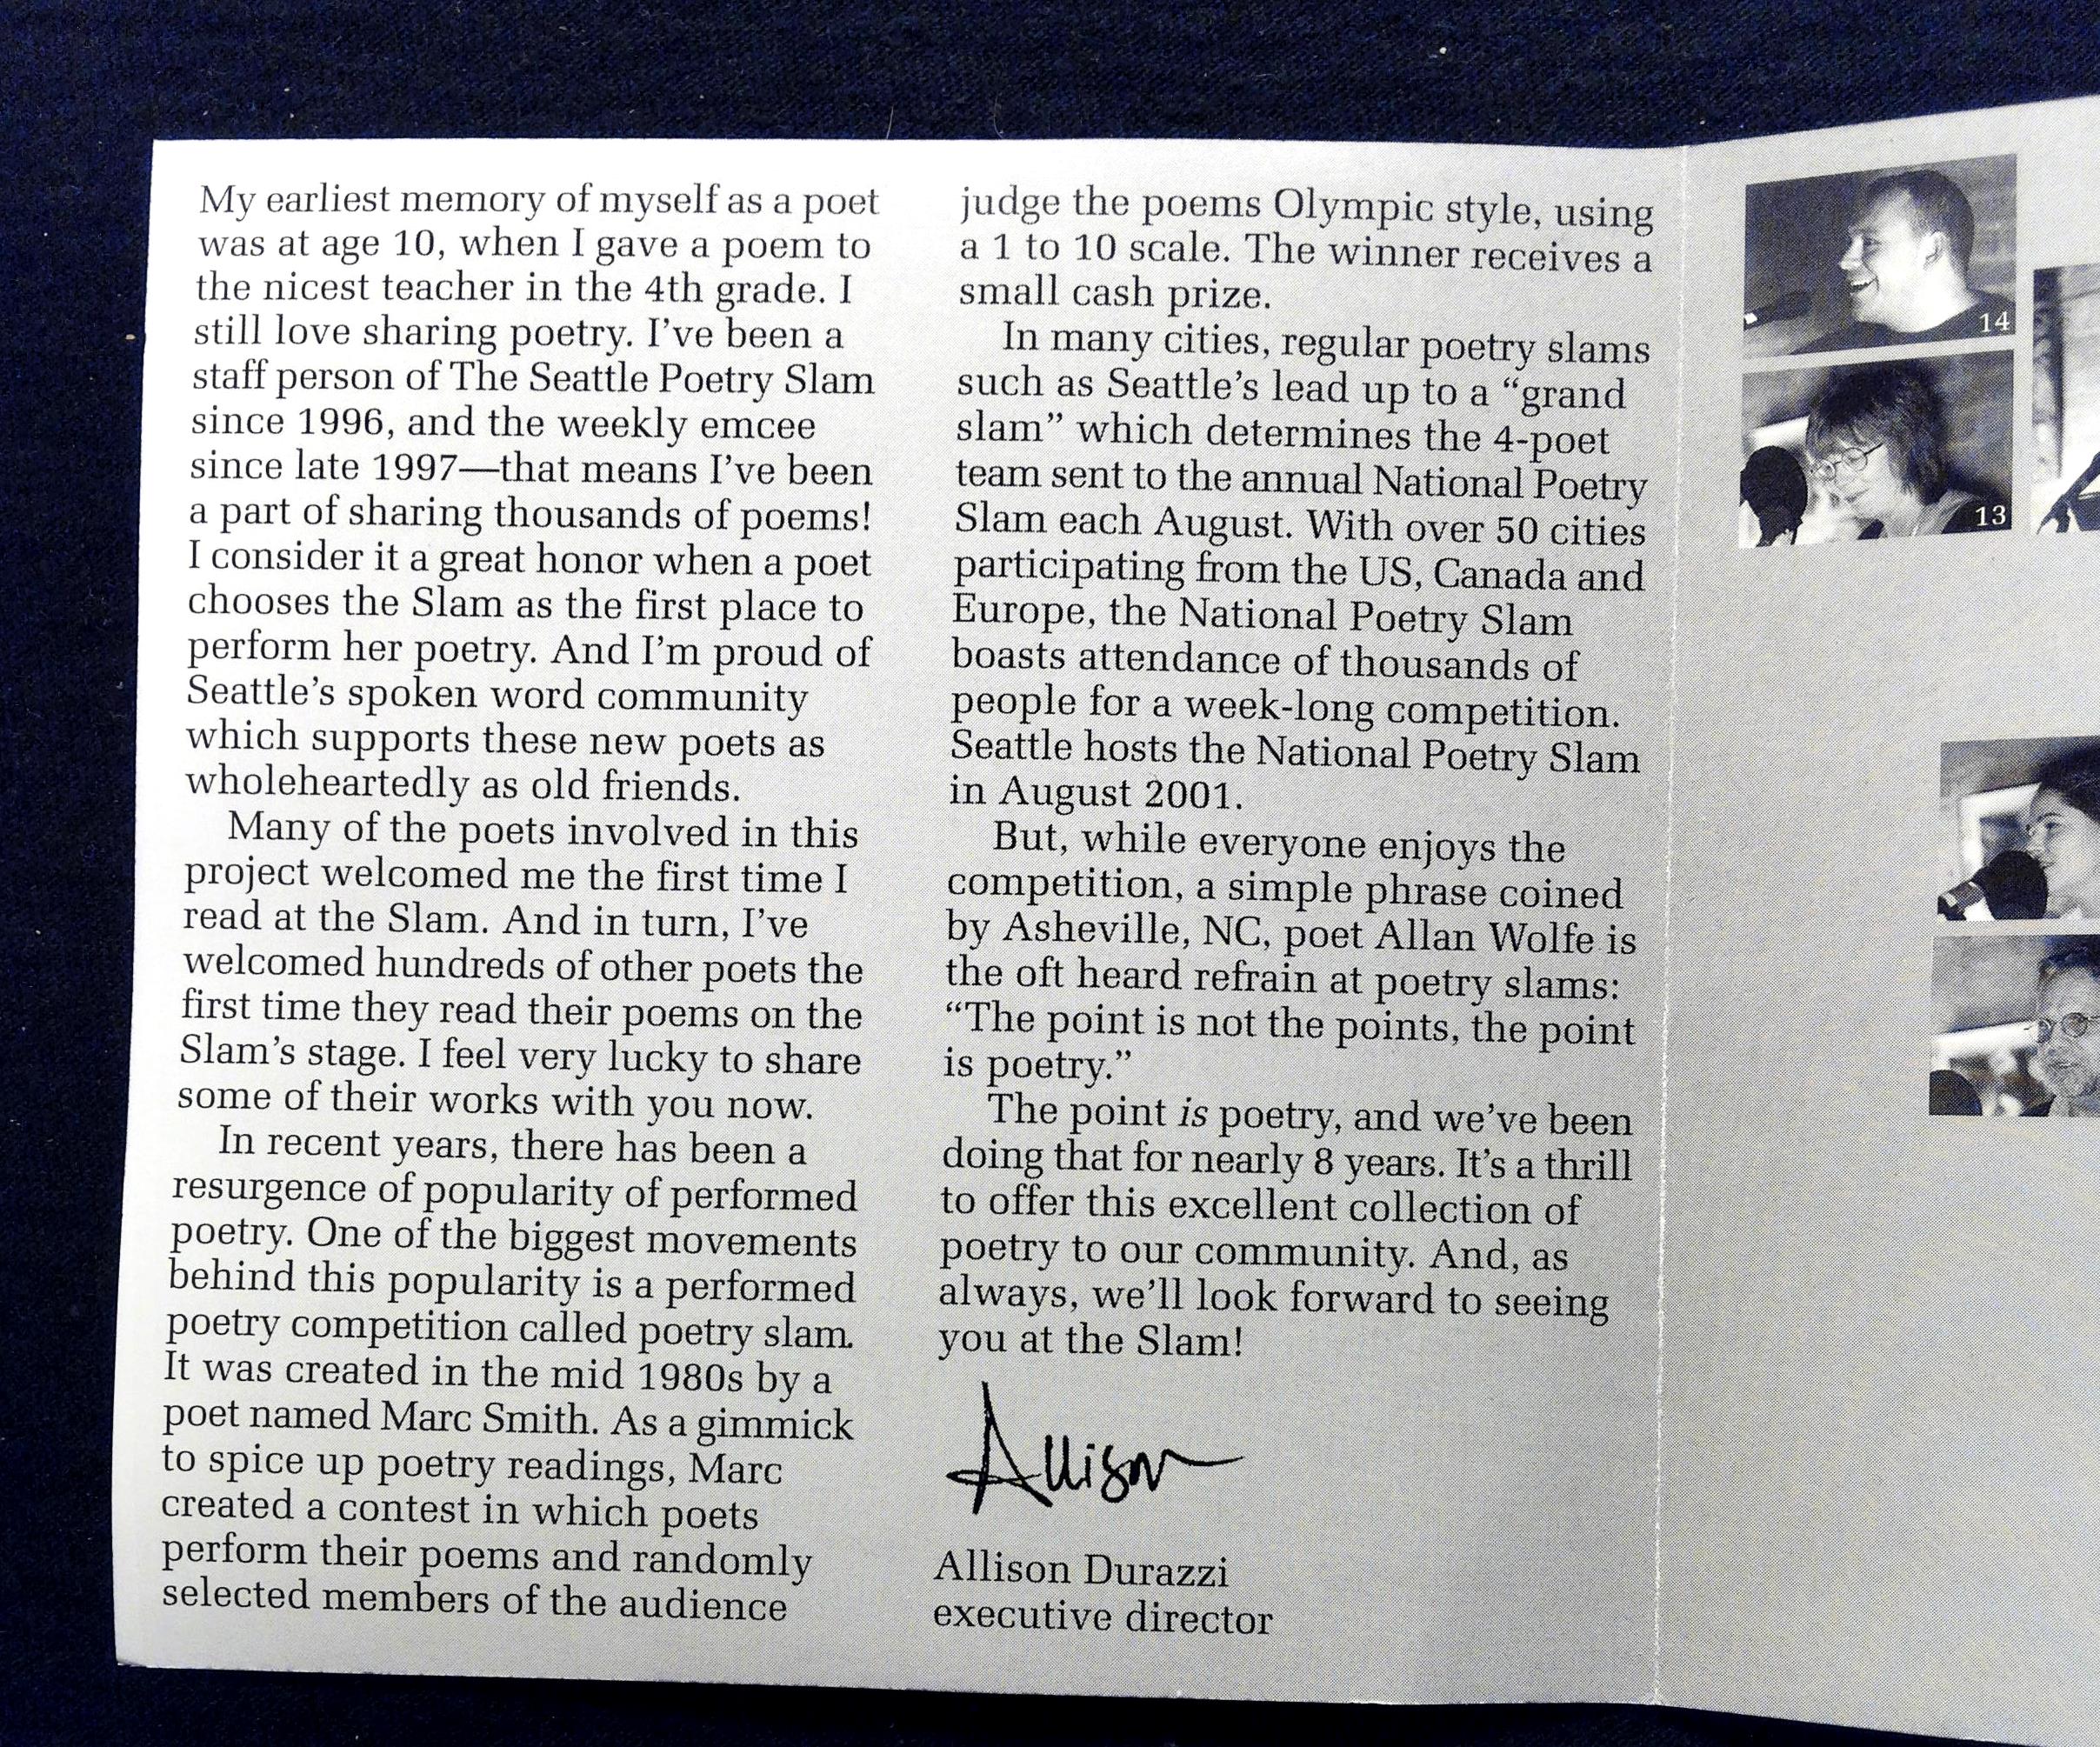 My earliest memory of myself as a poet
was at age 10, when I gave a poem to
the nicest teacher in the 4th grade. I
still love sharing poetry. I've been a
staff person of The Seattle Poetry Slam
since 1996, and the weekly emcee
since late 1997—that means I've been
a part of sharing thousands of poems!
I consider it a great honor when a poet
chooses the Slam as the first place to
perform her poetry. And I'm proud of
Seattle's spoken word community
which supports these new poets as
wholeheartedly as old friends.
Many of the poets involved in this
project welcomed me the first time I
read at the Slam. And in turn, I've
welcomed hundreds of other poets the
first time they read their poems on the
Slam's stage. I feel very lucky to share
some of their works with you now.
In recent years, there has been a
resurgence of popularity of performed
poetry. One of the biggest movements
behind this popularity is a performed
poetry competition called poetry slam.
It was created in the mid 1980s by a
poet named Marc Smith. As a gimmick
to spice up poetry readings, Marc
created a contest in which poets
perform their poems and randomly
selected members of the audience
judge the poems Olympic style, using
a 1 to 10 scale. The winner receives a
small cash prize.
In many cities, regular poetry slams
such as Seattle's lead up to a “grand
slam” which determines the 4-poet
team sent to the annual National Poetry
Slam each August. With over 50 cities
participating from the US, Canada and
Europe, the National Poetry Slam
boasts attendance of thousands of
people for a week-long competition.
Seattle hosts the National Poetry Slam
in August 2001.
But, while everyone enjoys the
competition, a simple phrase coined
by Asheville, NC, poet Allan Wolfe is
the oft heard refrain at poetry slams:
“The point is not the points, the point
is poetry.”
The point is poetry, and we've been
doing that for nearly 8 years. It's a thrill
to offer this excellent collection of
poetry to our community. And, as
always, we'll look forward to seeing
you at the Slam!
Allison
Allison Durazzi
executive director
14
13